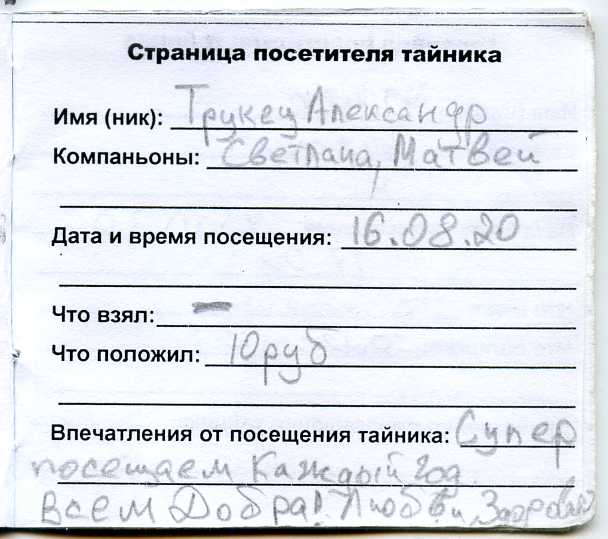 Страница посетителя тайника
Имя (ник): Трукец Александр
Компаньоны: Светлана, Матвей
Дата и время посещения: 16.08.20
Что взял: –
Что положил: 10 руб
Впечатления от посещения тайника: Супер
посещаем Каждый год.
Всем Добра! Любви, Здоровья